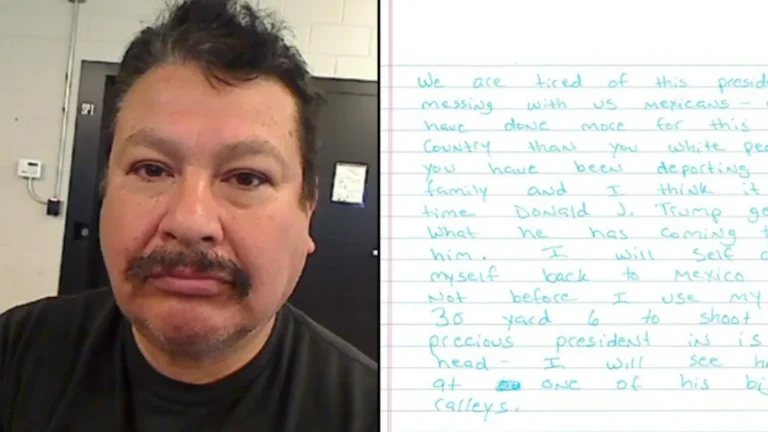 We are tired of this preside
messing with us Mexicans -
have done more for this
country than you white pe
you have been deporting
family and I think it
time Donald J. Trump ge
what he has coming t
him. I will self d
myself back to Mexico
Not before I use my
30 yard 6 to shoot
precious president in is
head - I will see h
at one of his bi
ralleys.